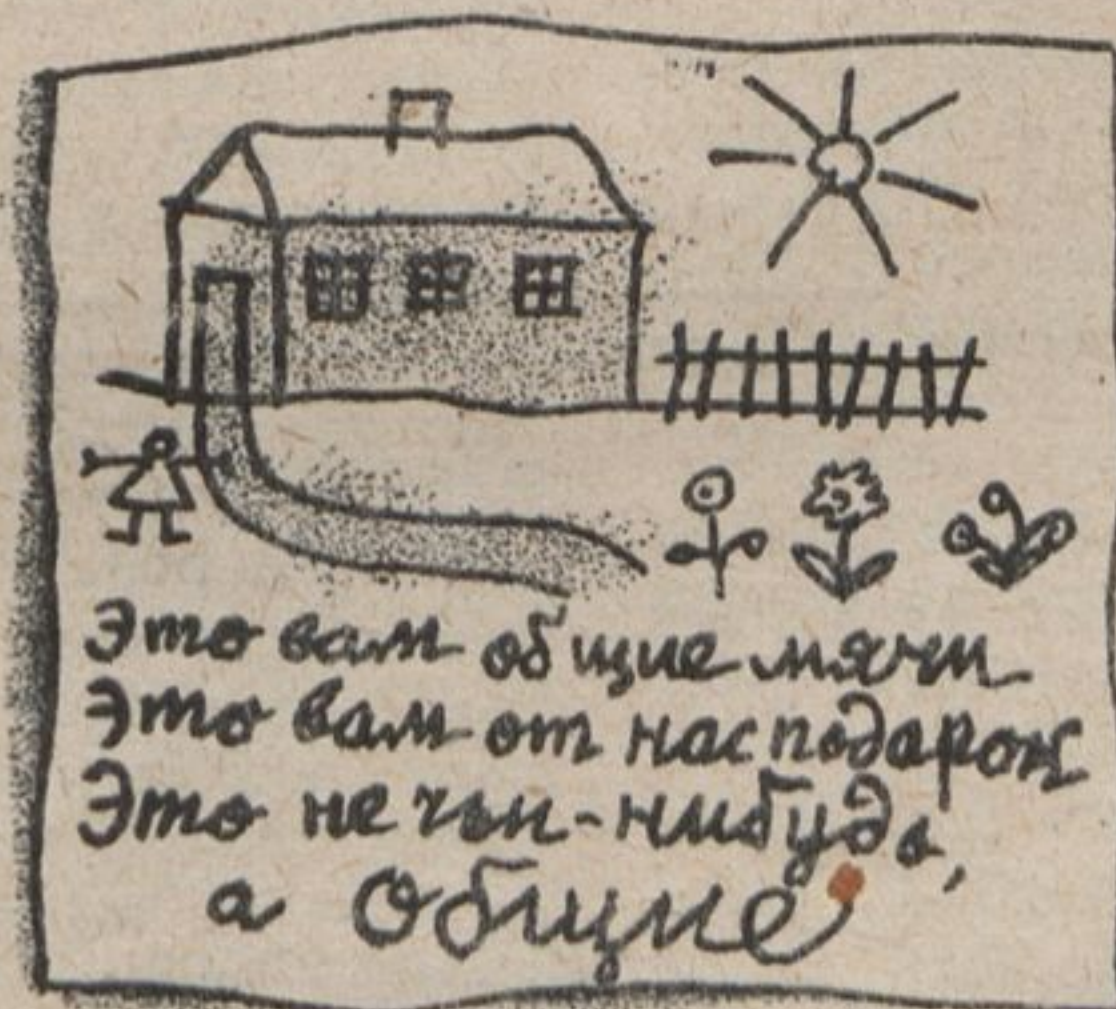 Это вам общие мячи
Это вам от нас подарок
Это не чьи-нибудь,
а общие